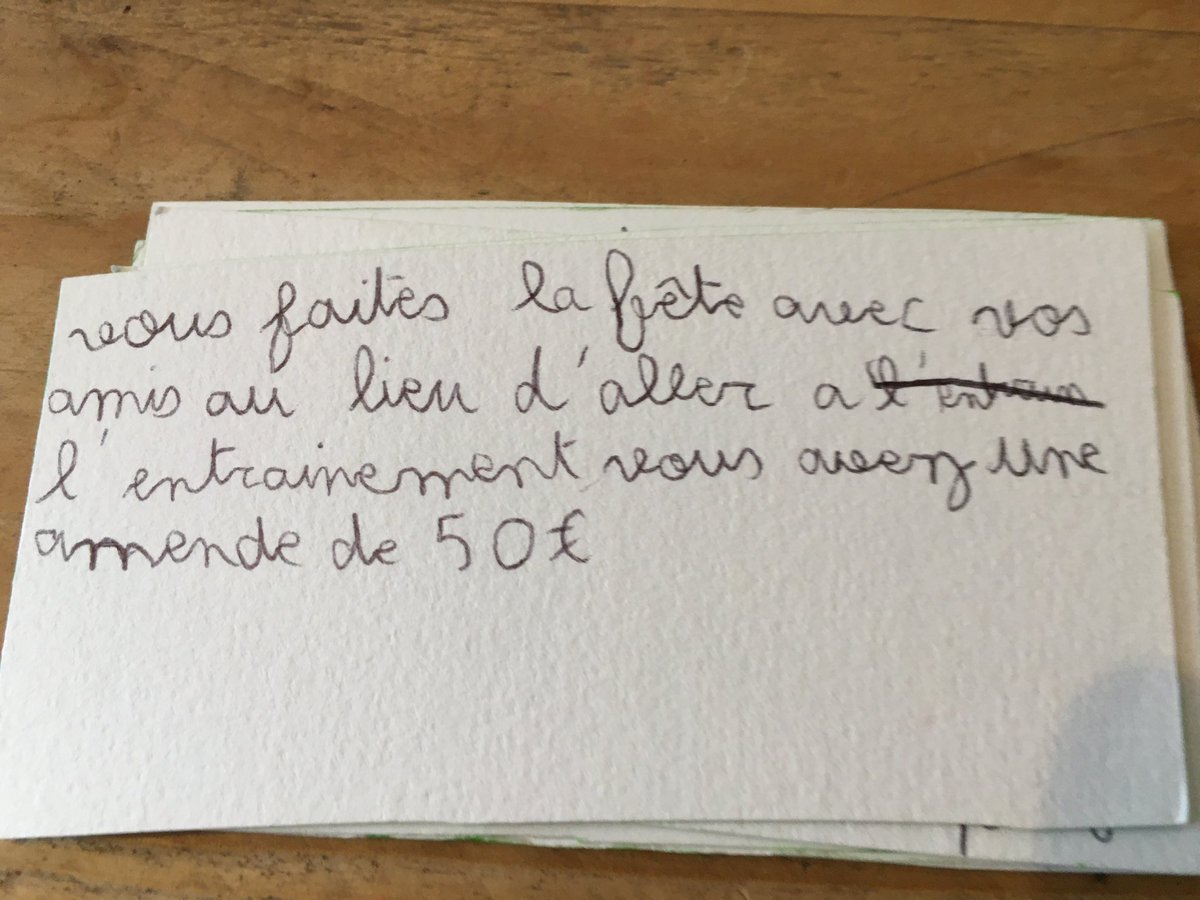 vous faites la fête avec vos
amis au lieu d'aller a l'entrain
l'entrainement vous avez une
amende de 50€